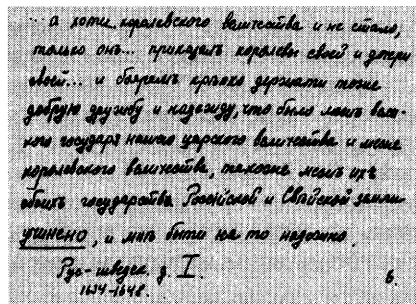 ... а хотя королевского величества и не стало,
только онъ... приказалъ королевы своей и дочери
своей... и бояремъ крѣпко держати тоже
добрую дружбу и надежду, что было межъ вели-
кого государя нашего царского величества и межъ
королевского величества, такоже межъ ихъ
обоихъ государства Російской и Свѣйской земли
учинено, и мнѣ быти на то надежно.
Рус-шведск. д. I.
1634-1648. 6.